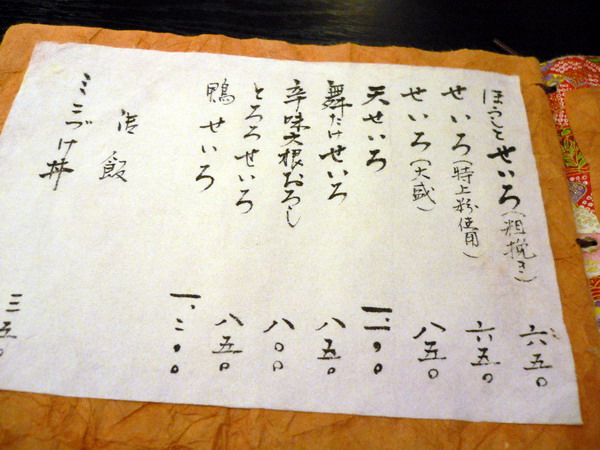 ほそびとせいろ(粗挽き) 六五〇
せいろ(特上粉使用) 六五〇
せいろ(大盛) 八五〇
天せいろ 一、二〇〇
舞たけせいろ 八五〇
辛味大根おろし 八〇〇
とろろせいろ 八五〇
鴨せいろ 一、二〇〇
御飯
ミニづけ丼 三五〇